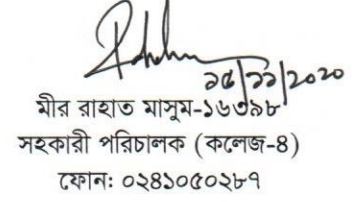 ১৫/১১/২০২০
মীর রাহাত মাসুম-১৬৩৯৮
সহকারী পরিচালক (কলেজ-৪)
ফোন: ০২৪১০৫০২৮৭